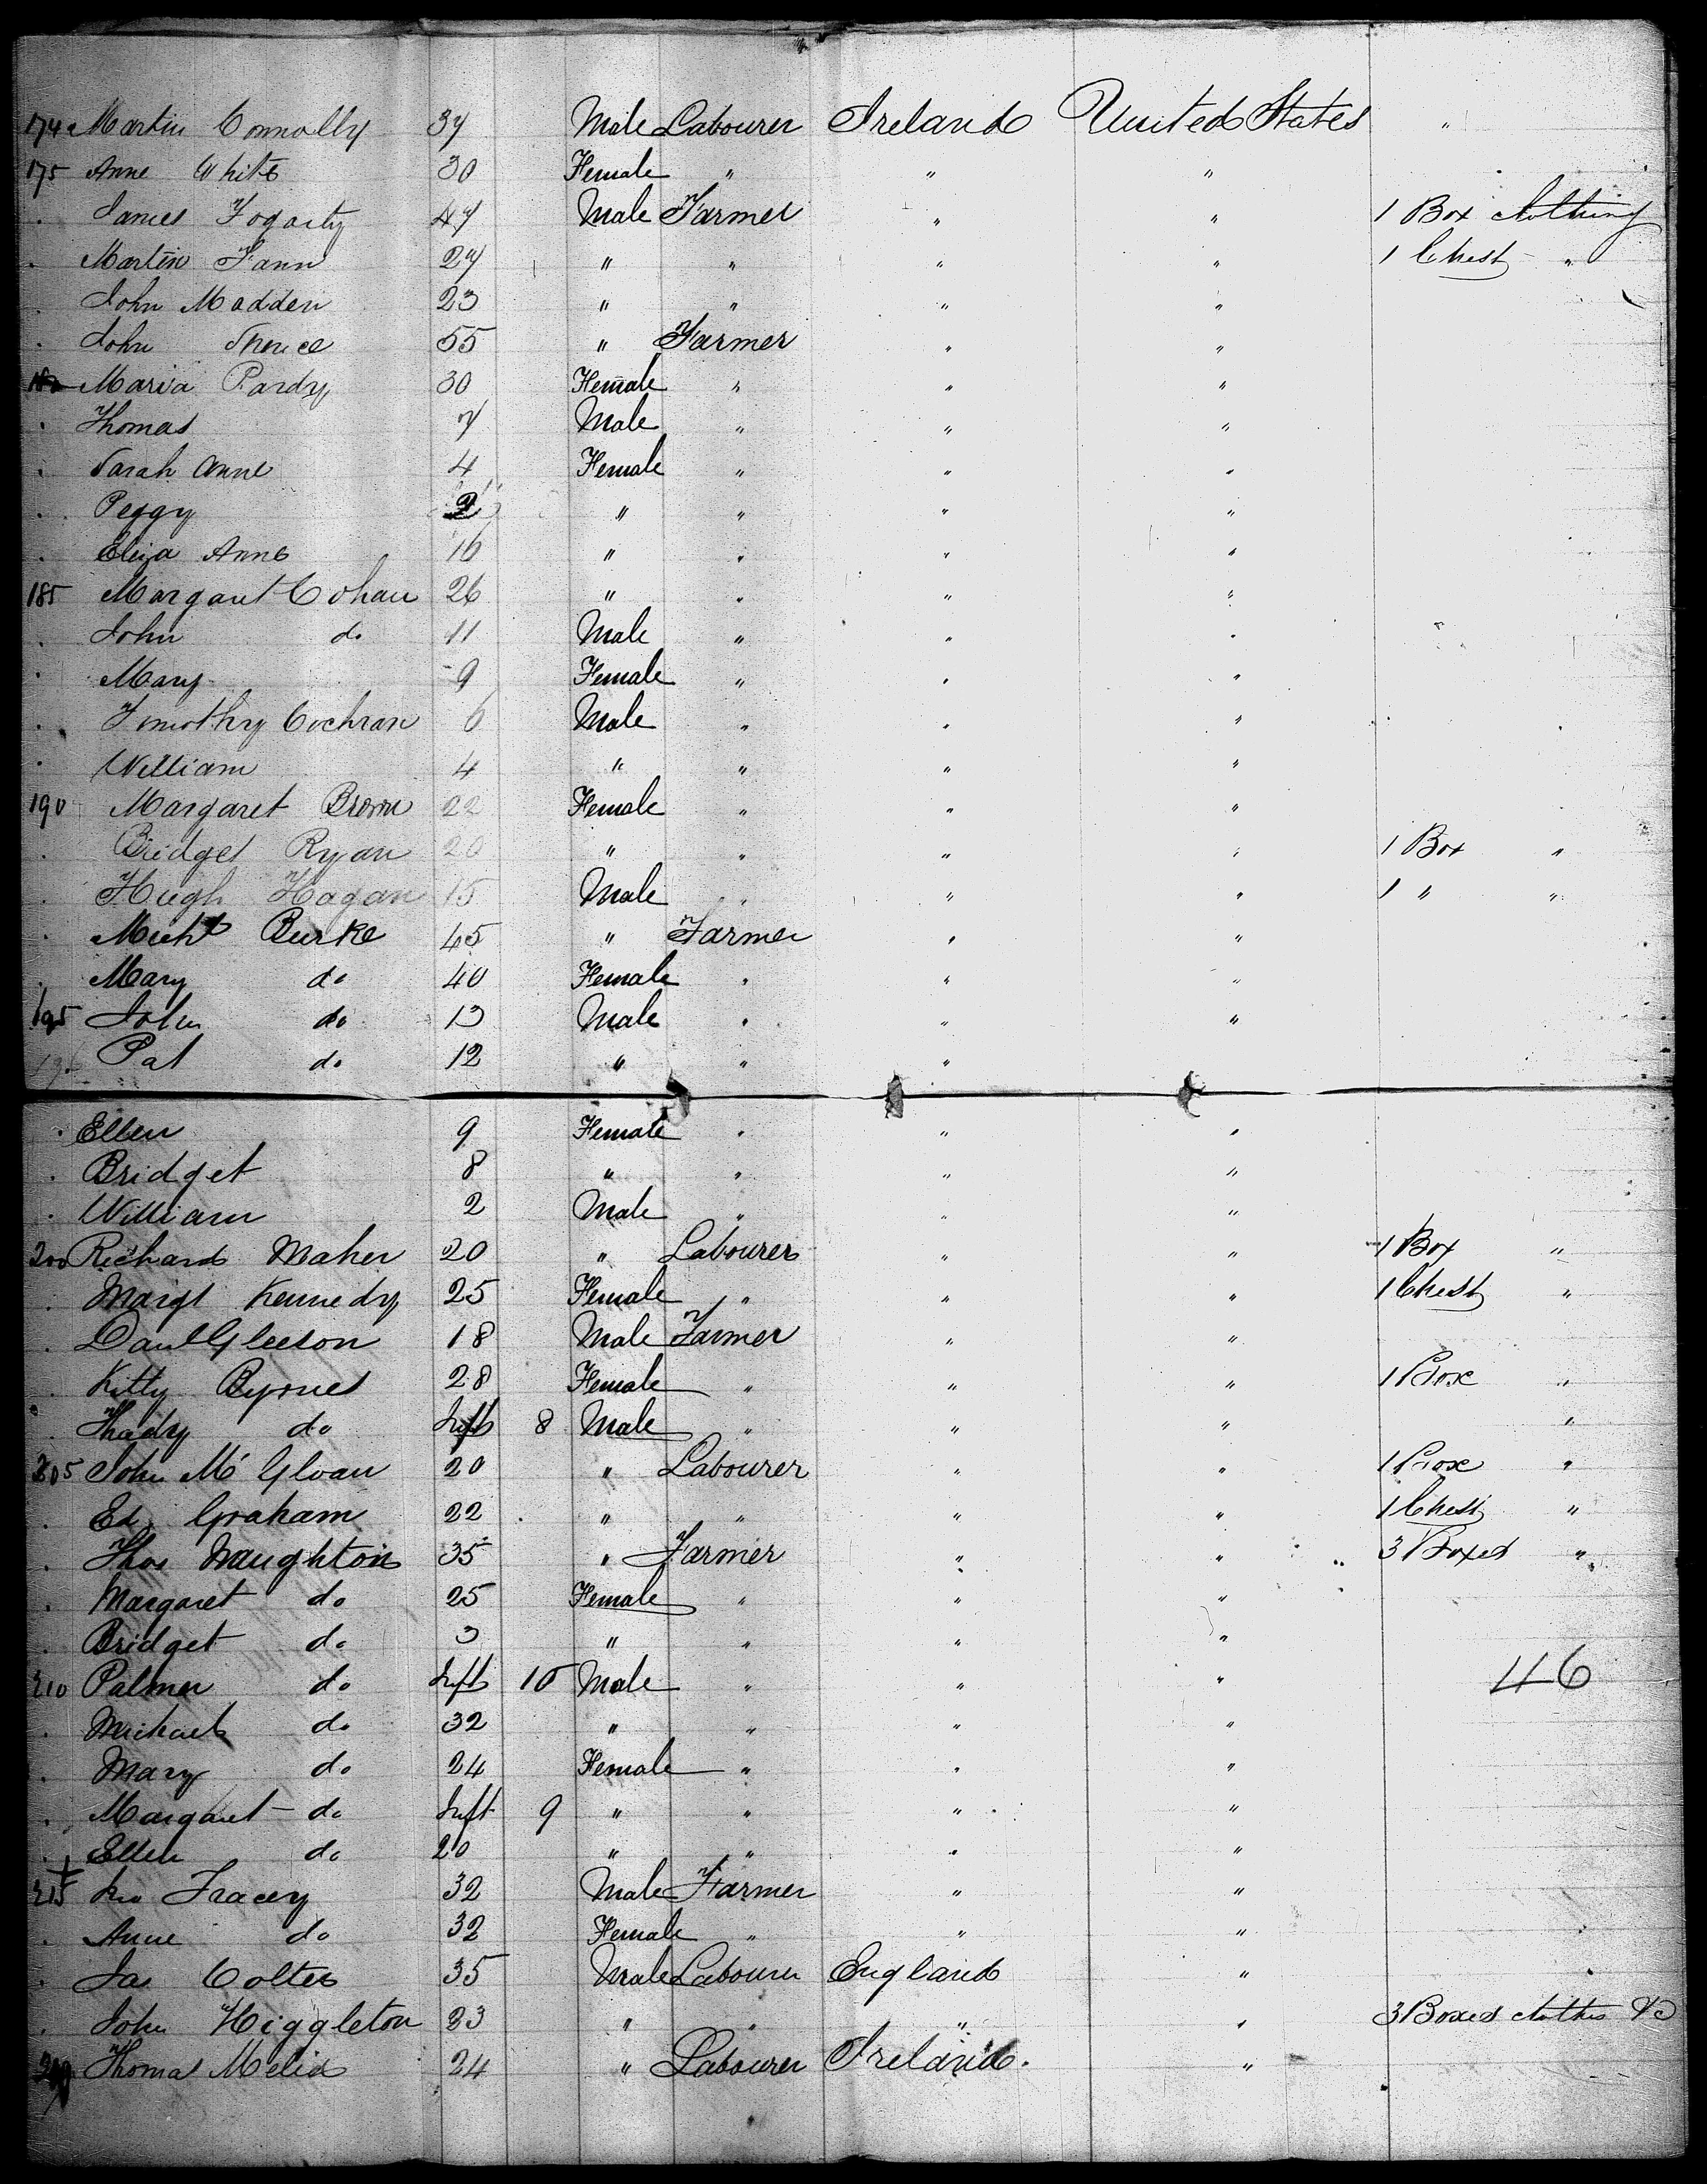 174 Martin Connolly 37 Male Labourer Ireland United States "
175 Anne White 30 Female " " "
James Fogarty 47 Male Farmer " " 1 Box Clothing
Martin Fann 27 " " " " 1 Chest "
John Madden 23 " " " "
John 55 " Farmer " "
Maria Pardy 30 Female " " "
Thomas 7 Male " " "
Sarah Anne 4 Female " " "
Peggy 2 " " " "
Eliza Anne 16 " " " "
185 Margaret Cohan 26 " " " "
John do 11 Male " " "
Mary 9 Female " " "
Timothy Cochran 6 Male " " "
William 4 " " " "
190 Margaret Brown 22 Female " " "
Bridget Ryan 20 " " " " 1 Box "
Hugh Hagan 15 Male " " " 1 " "
Michl Burke 45 " Farmer " "
Mary do 40 Female " " "
195 John do 13 Male " " "
196 Pat do 12 " " "
Ellen 9 Female " " "
Bridget 8 " " " "
William 2 Male " " "
200 Richard Maher 20 " Labourer " " 1 Box "
Margt Kennedy 25 Female " " " 1 Chest "
Danl Gleeson 18 Male Farmer " "
Kitty Byrnes 28 Female " " " 1 Box "
Thady do Inft 8 Male " " " "
205 John Mc Gloan 20 " Labourer " " 1 Box "
Ed. Graham 22 " " " " 1 Chest "
Thos Naughton 35 " Farmer " " 3 Boxes "
Margaret do 25 Female " " "
Bridget do 3 " " " "
210 Palmer do Inft 10 Male " " " 46
Michael do 32 " " " "
Mary do 24 Female " " "
Margaret do Inft 9 " " " "
Ellen do 20 " " " "
215 Tracey 32 Male Farmer " "
Anne do 32 Female " " "
Jas Coltes 35 Male Labourer England "
John Higgleton 23 " " " " 3 Boxes Clothes &c
Thomas Melia 24 " Labourer Ireland. "